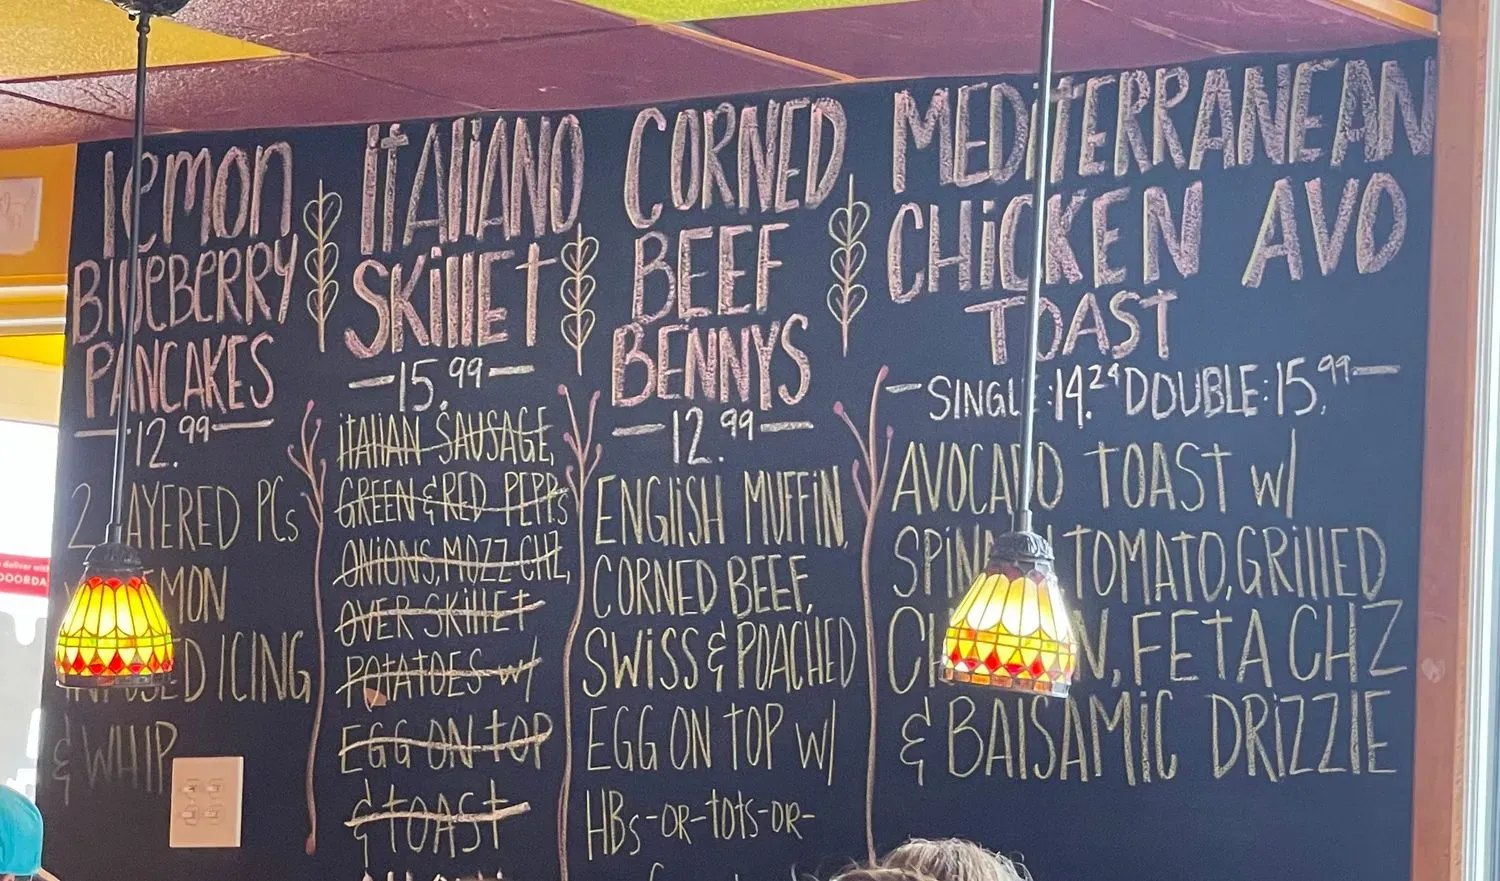 lemon
BlUeBeRRY
PANCAKES
12.99
2 AYERED PCs
MON
D ICING
& WHIP
iTAliANO
SKillEt
15.99
iTAliAN SAUSAGE,
GREEN & RED PEPPs
ONiONS, MOZZ CHZ,
OVER SKillEt
POTATOES w/
EGG ON tOP
& tOAST
CORNED
BEEF
BENNYS
12.99
ENGliSH MUFFiN,
CORNED BEEF,
SWiSS & POACHED
EGG ON TOP w/
HBs-OR-tOtS-OR-
MEDiTERRANEAN
CHiCKEN AVO
TOAST
SINGL :14.24 DOUBLE:15.99
AVOCADO TOAST w/
SPiN TOMATO, GRillED
CH N, FETA CHZ
& BAlSAMiC DRiZZlE
deliver with
DOORDA